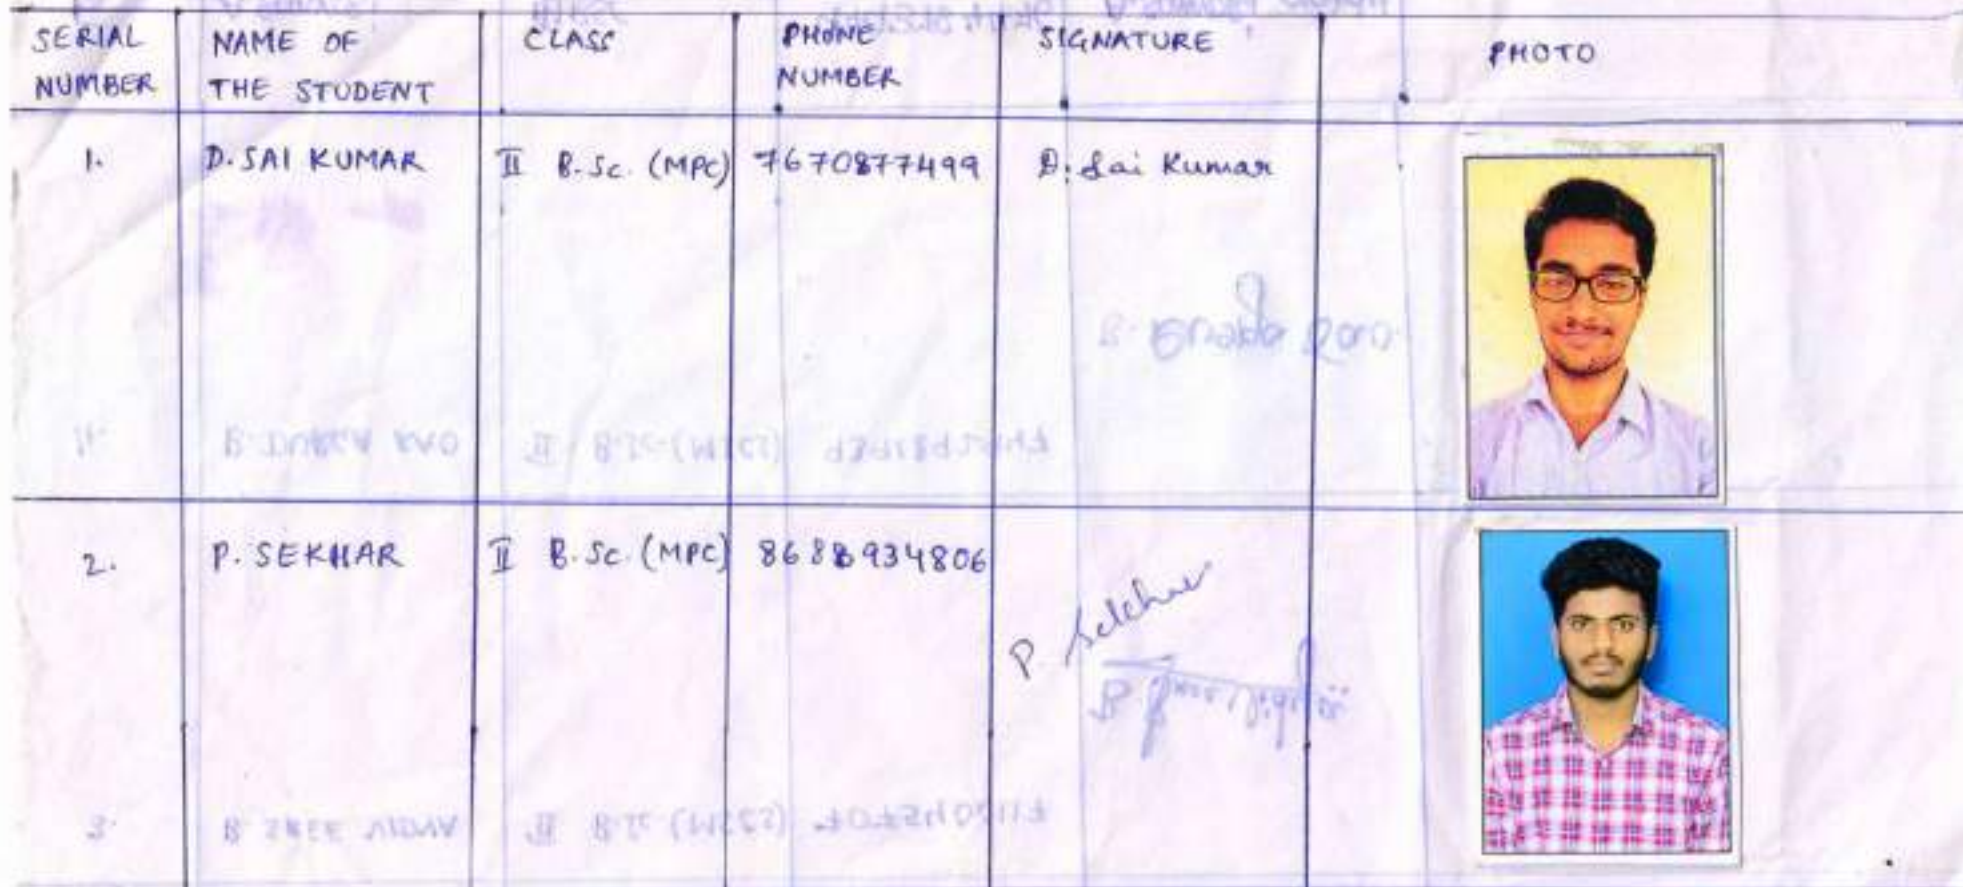 SERIAL NUMBER NAME OF THE STUDENT CLASS PHONE NUMBER SIGNATURE PHOTO
1. D. SAI KUMAR II B.Sc. (MPC) 7670877499 D. Sai Kumar
2. P. SEKHAR II B.Sc. (MPC) 8688934806 P. Sekhar